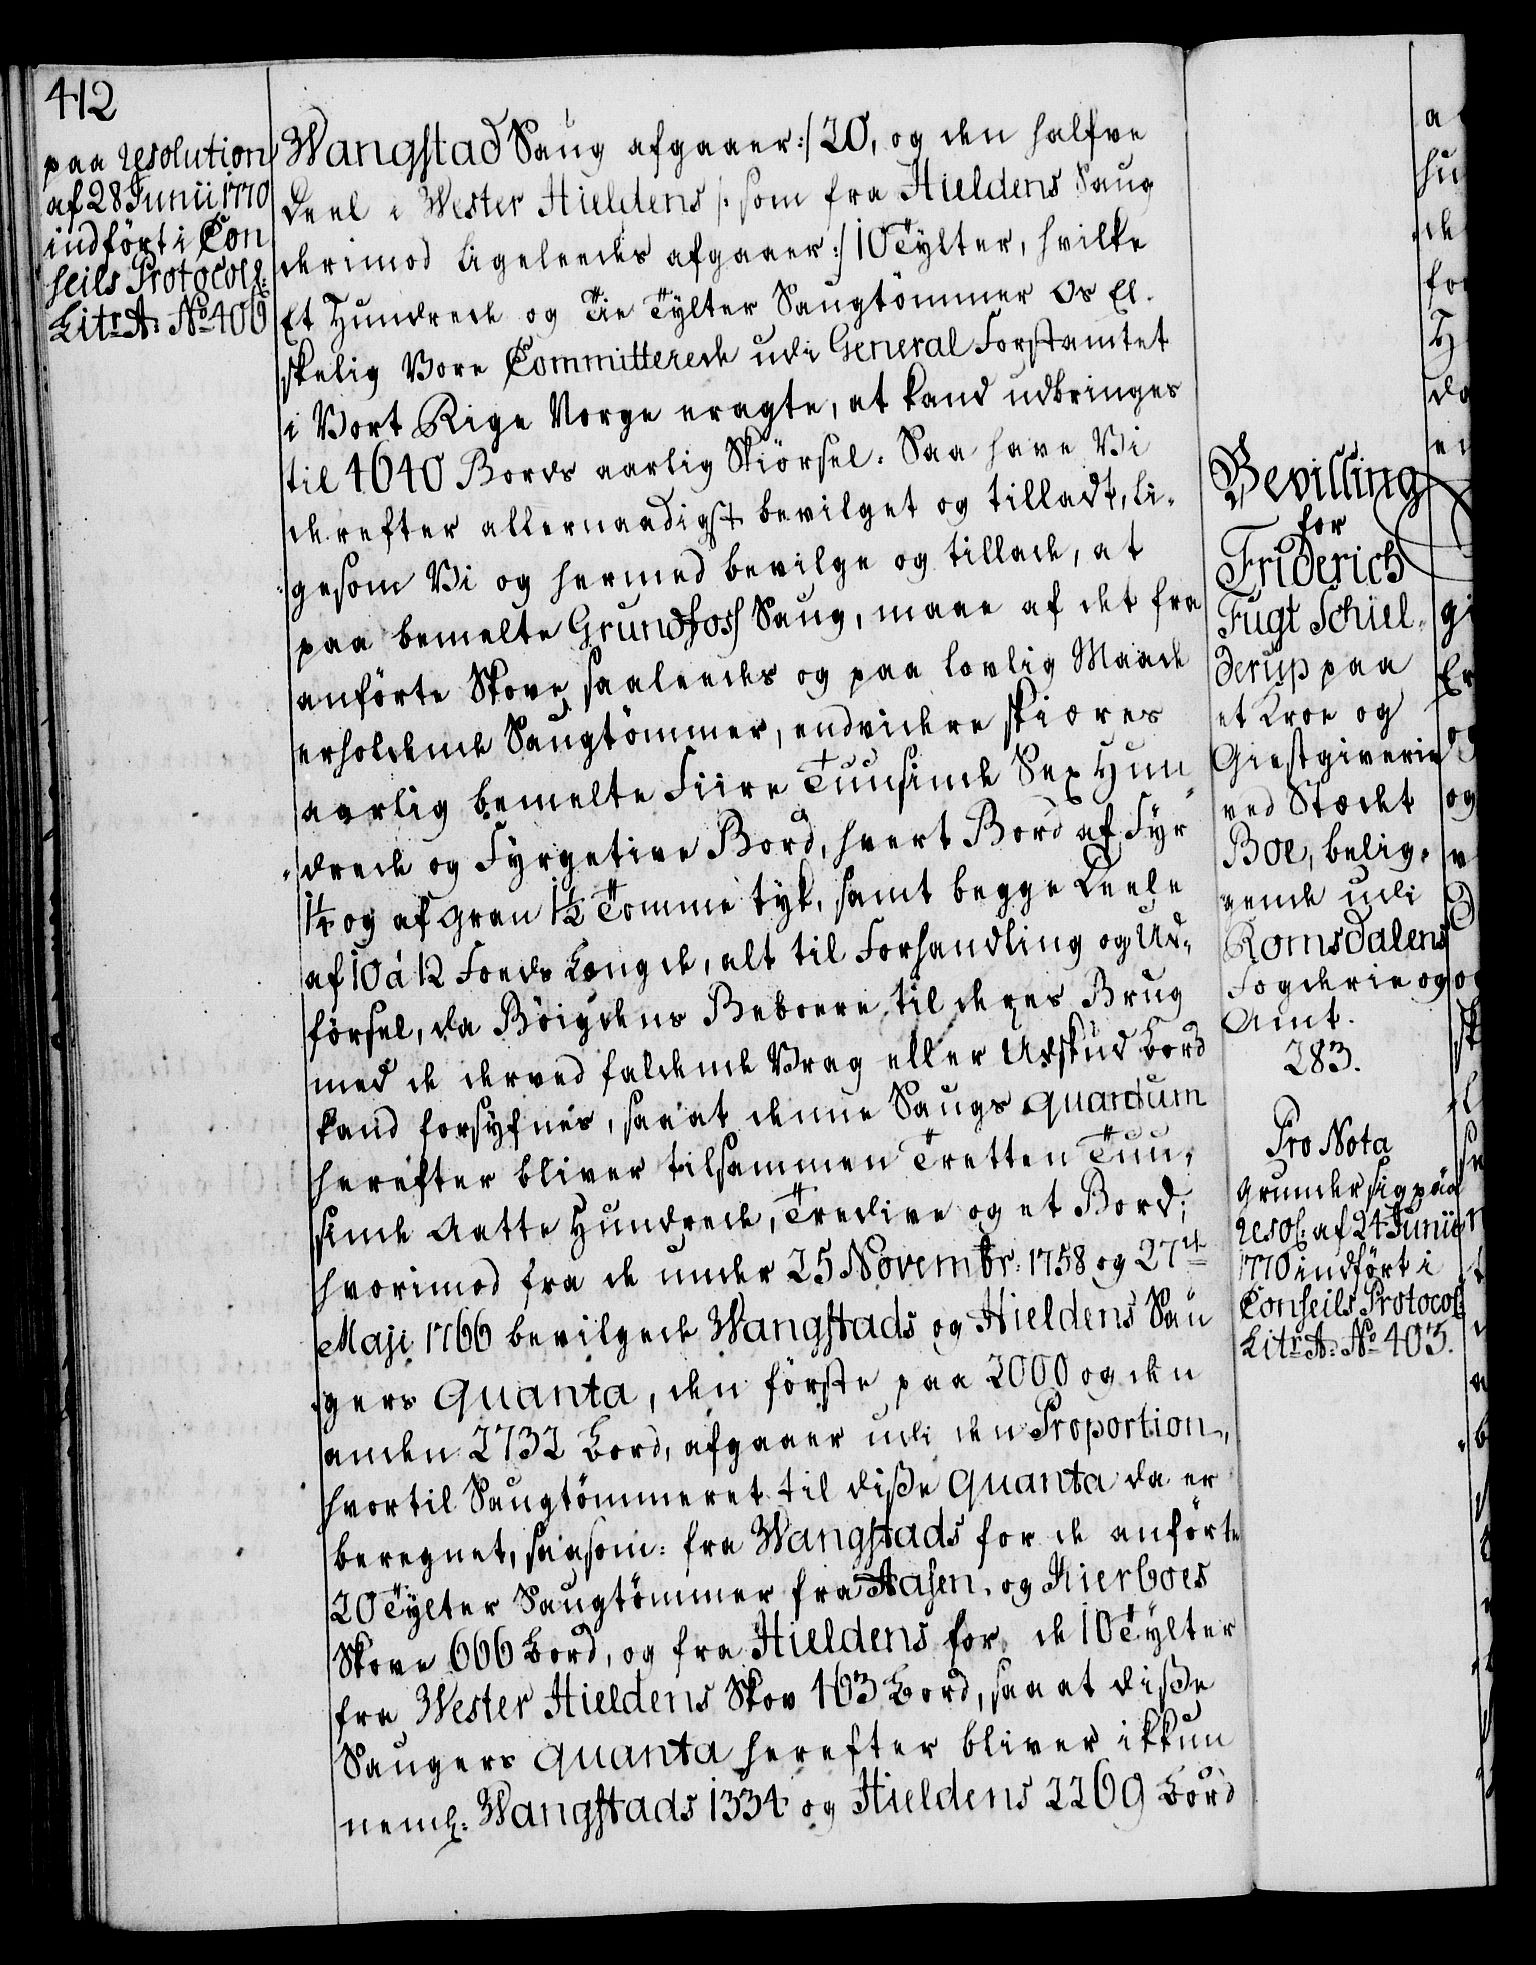 412
paa resolution
af 28 Junii 1770
indført i Con
seils Protocoll:
Litr. A. No. 406
Wangstad Saug afgaaer :/ 20, og den halfve
Deel i Wester Hieldens /: som fra Hieldens Saug
derimod ligeledes afgaaer :/ 10 Tylter, hvilke
Et Hundrede og Tie Tylter Saugtömmer Os El-
skelig Vore Committerede udi General Forstamtet
i Vort Rige Norge eragte, at kand udbringes
til 4640 Bords aarlig Skiørsel. Saa have Vi
derefter allernaadigst bevilget og tilladt, li-
gesom Vi og hermed bevilge og tillade, at
paa bemelte Grundfoss Saug, maae af det fra
anførte Skove saaledes og paa lovlig Maade
erholdende Saugtömmer, endvidere skiæres
aarlig bemelte Fiire Tuusinde Sex Hun
drede og Fyrgetive Bord, hvert Bord af Fyr
1¼ og af Gran 1½ Tomme tyk, samt begge Deele
af 10 á 12 Foeds Længde, alt til Forhandling og Ud-
førsel, da Böigdens Beboere til deres Brug
med de derved faldende Vrag eller Udskud Bord
kand forsyfnes, saa at denne Saugs quantum
herefter bliver tilsammen Tretten Tuu-
sinde Aatte Hundrede, Tredive og et Bord;
hvorimod fra de under 25 Novembr: 1758 og 27de
Maji 1766 bevilgede Wangstads og Hieldens Sau
gers Quanta, den første paa 2000 og den
anden 2732 Bord, afgaaer udi den Proportion,
hvortil Saugtömmeret til diße quanta da er
beregnet, saasom: fra Wangstads for de anførte
20 Tylter Saugtömmer fra Aasen og Kierboes
Skove 666 Bord, og fra Hieldens for de 10 Tylter
fra Wester Hieldens Skov 463 Bord, saa at diße
Saugers quanta herefter bliver ikkun
neml: Wangstads 1334 og Hieldens 2269 Bord
Bevilling
for
Friderich
Fugt Schiel-
derup paa
et Kroe og
Giestgiverie
ved Stædet
Boe, belig-
gende udi
Romsdalens
Fogderie og
Amt.
283.
Pro Nota
grunder sig paa
resol: af 24 Junii
1770 indført i
Conseils Protocol:
Litr. A. No. 403.